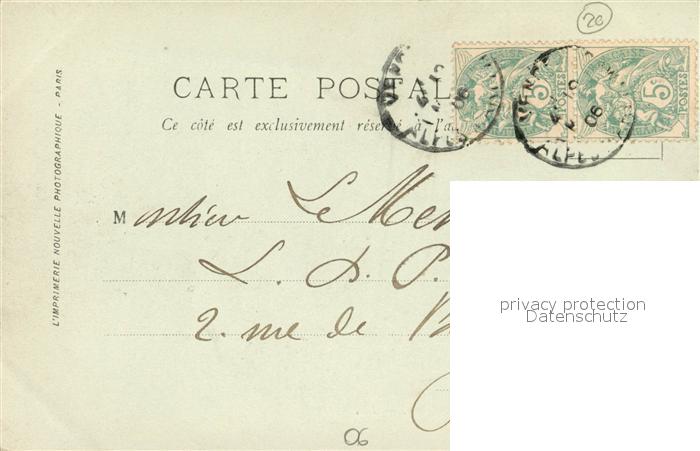 20
CARTE POSTAL
Ce côté est exclusivement réservé à l'a
L'IMPRIMERIE NOUVELLE PHOTOGRAPHIQUE - PARIS
5c POSTES
5c POSTES
06
ALPES
06
ALPES
Monsieur Le Men
L. D. P.
2. rue de
privacy protection
Datenschutz
06